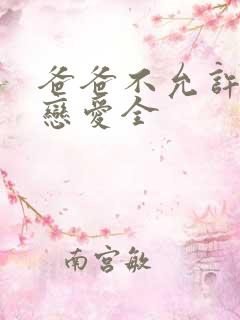 爸爸不允許
戀愛全
南宮敏